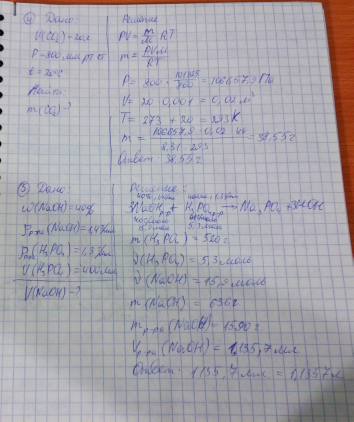 ④ Дано
V(CO₂) = 20л
P = 800 мм рт ст
t = 20°C
Найти
m(CO₂) - ?
Решение
PV = m/M RT
m = PVM/RT
P = 800 · 101325/760 = 106657,9 Па
V = 20 · 0,001 = 0,02 м³
T = 273 + 20 = 293 K
m = 106657,9 · 0,02 · 44 / 8,31 · 293 = 38,55 г
Ответ: 38,55 г
⑤ Дано
ω(NaOH) = 40%
ρр-ра (NaOH) = 1,4 г/мл
ρр-ра (H₃PO₄) = 1,3 г/мл
V(H₃PO₄) = 400 мл
V(NaOH) - ?
Решение:
3NaOH + H₃PO₄ → Na₃PO₄ +
m(H₃PO₄) = 520 г
ν(H₃PO₄) = 5,3 моль
ν(NaOH) = 15,9 моль
m(NaOH) = 636 г
mр-ра (NaOH) = 1590 г
Vр-ра (NaOH) = 1135,7 мл
Ответ: 1135,7 мл = 1,1357 л